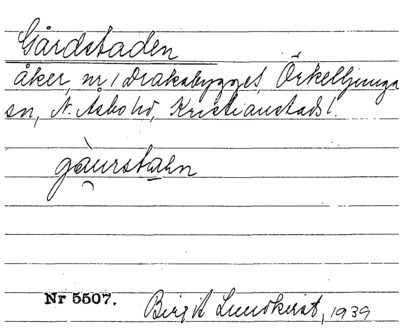 Gårdstaden
åker, nr 1 Drakabygget, Örkelljunga
sn, N. Åsbo hd, Kristianstads l.
gàurstahn
Nr 5507. Birgit Lundkvist, 1939